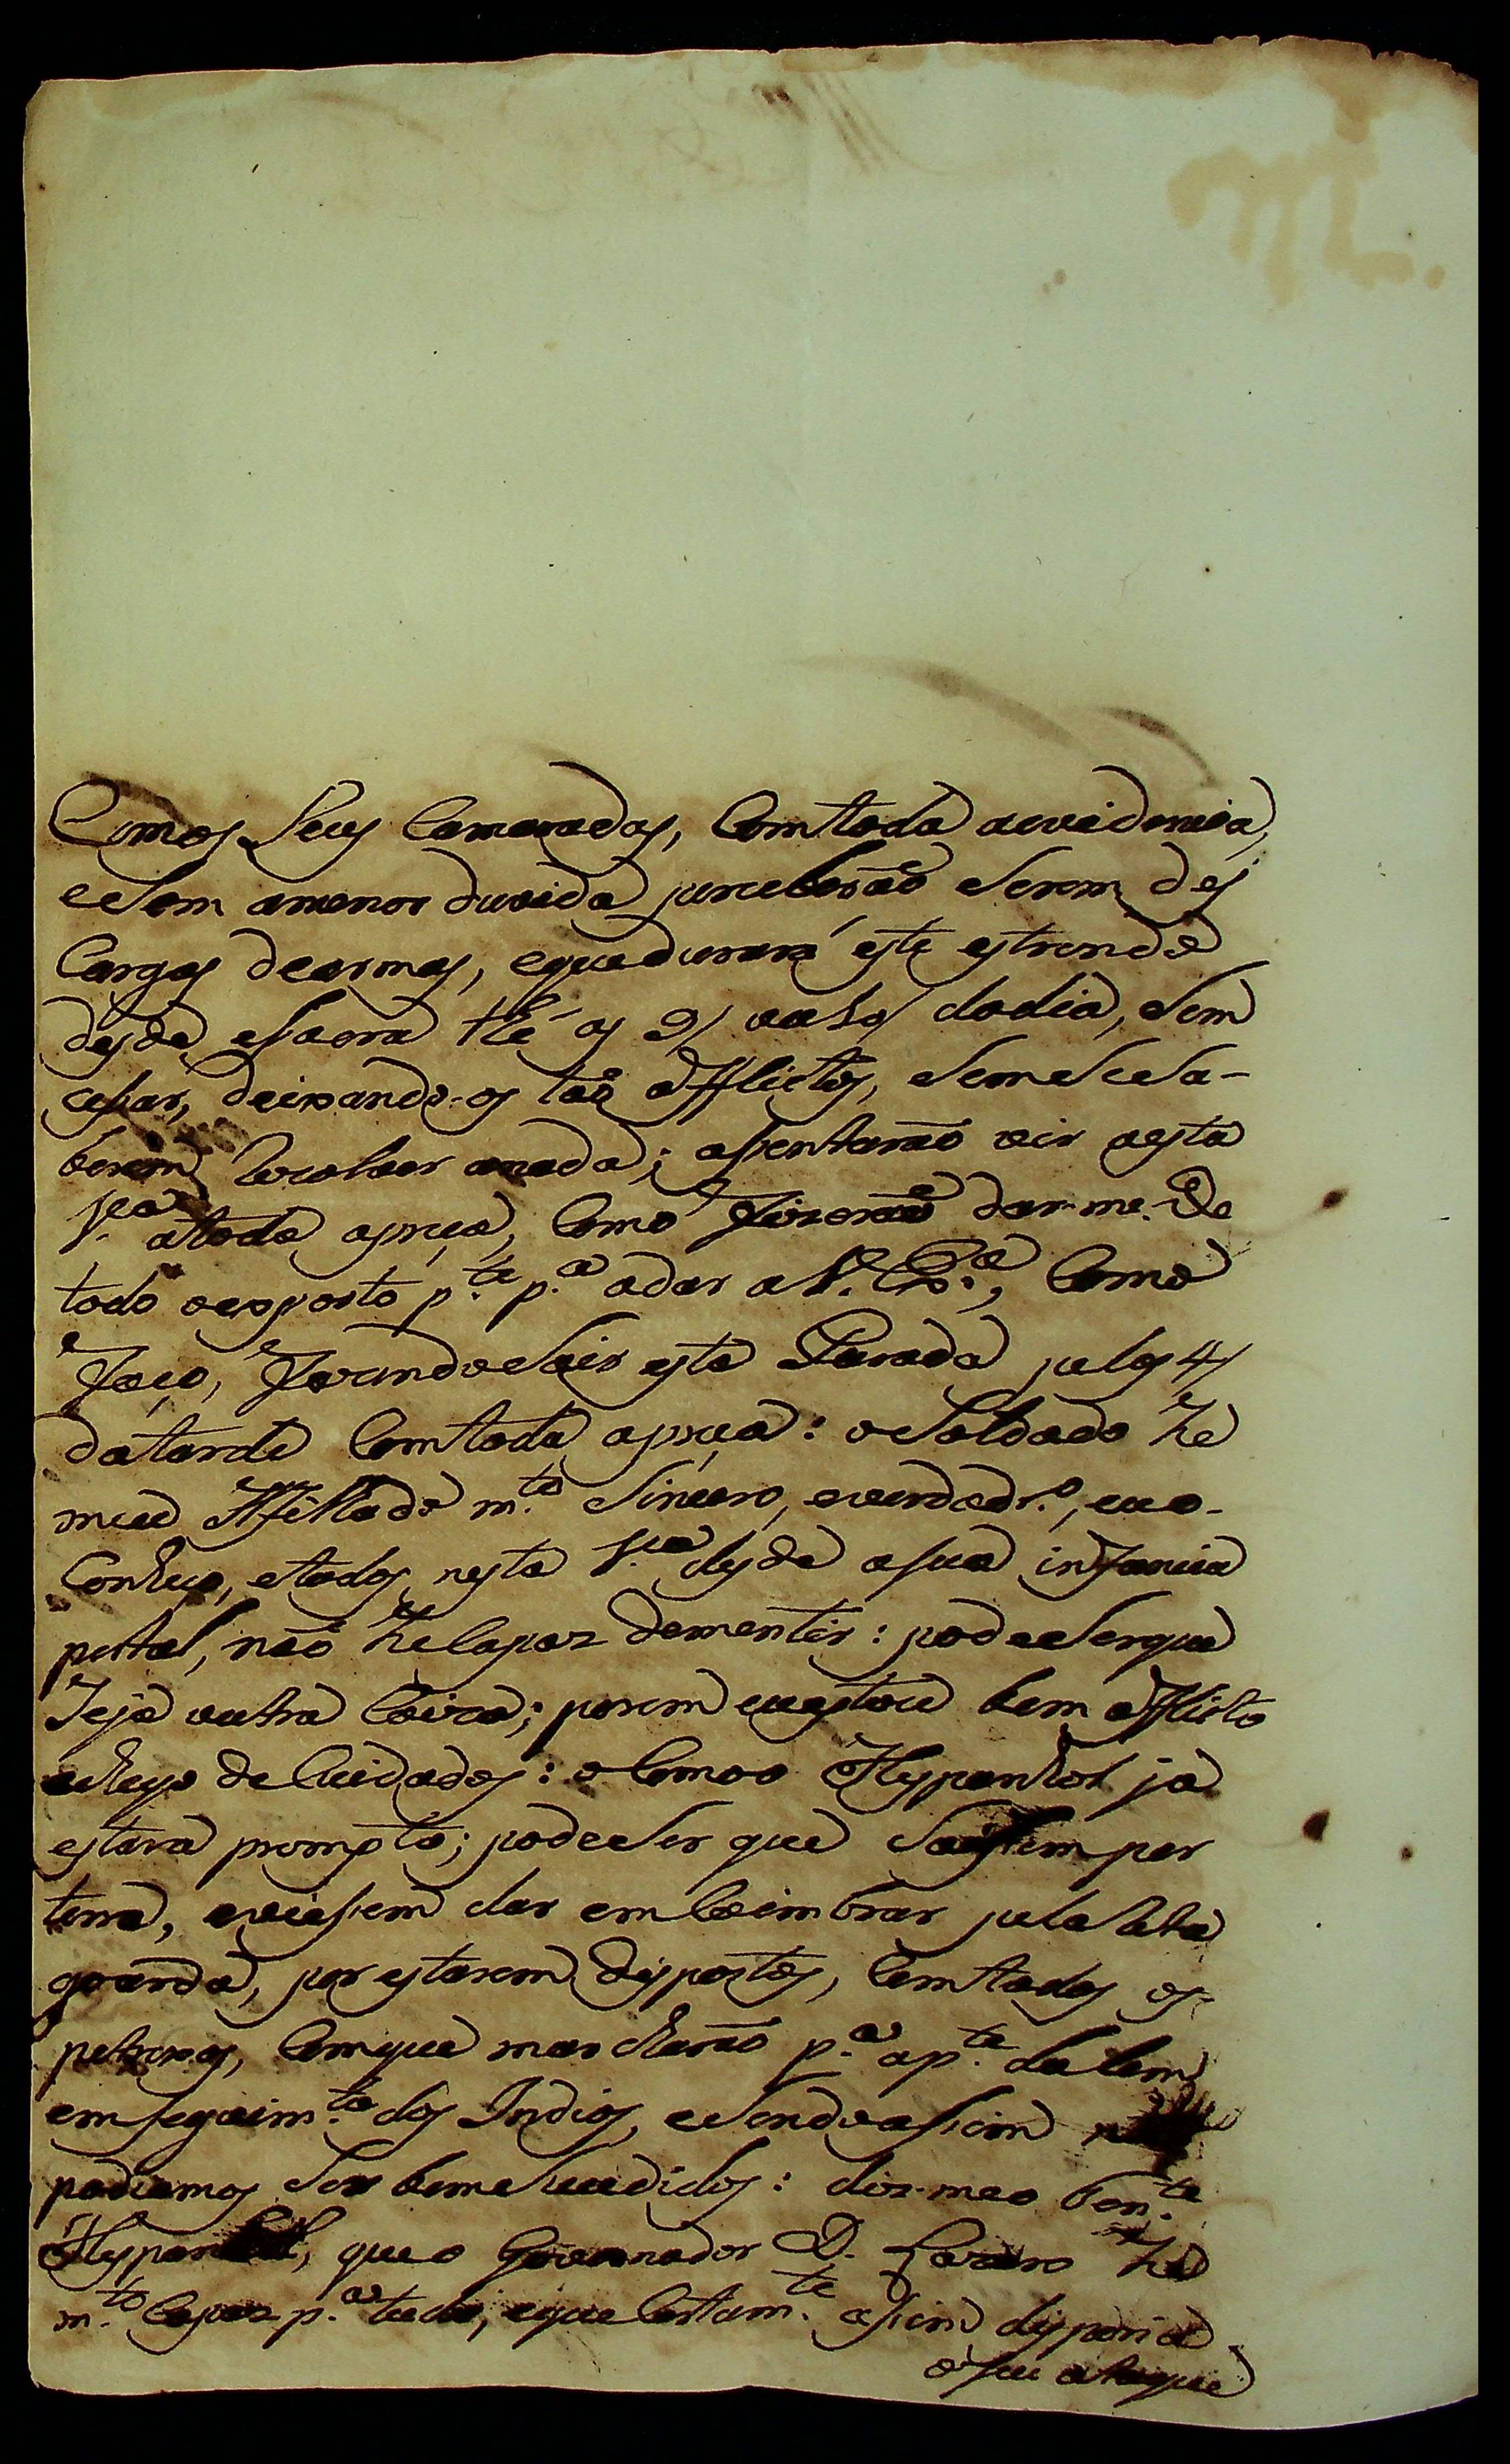 Comos Seus Camaradas, Comtoda aevidencia,
eSem amenor duvida perceberaõ Serem des
Cargas dearmas, equedurará este estrondo
desde essaora thé as 9/ ou 10/ dodia, Sem
cessar, deixando-os taõ afflictos, Semse Sa-
berem rezolver anada; asentaraõ vir aesta
V.ª atoda apreça, Como fizeraõ dar-me De
todo oexposto p.te p.ª adar a V. Ex.ª, Como
Faço, Fazendo Sair esta Parada pelas 4/
datarde Comtoda apreça: oSoldado he
meu Afilhado m.to Sincero, everdadr.o, euo-
Conheço, etodos nesta V.ª desde asua infancia
portal, não hecapaz dementir: podeSerque
Seja outra Coiza; porem euestou bem afflicto
echeyo de Cuidados: eComoo Hyparchol ja
estava prompto; podeSer que Saissem por
terra, eviessem dar emCoimbrar pelaReta
goarda, por estarem dispostos, Comtodos os
petrexos, Comque marcharaõ p.ª ap.te dalem
emseguim.to dos Indios, eSendoassim
podiamos Ser bemeSuadidos: diz-meo Ten.te
que o Governador D. Lazaro he
m.to Capaz p.ª tudo, eque Certam.te assim disporia
oseu ataque